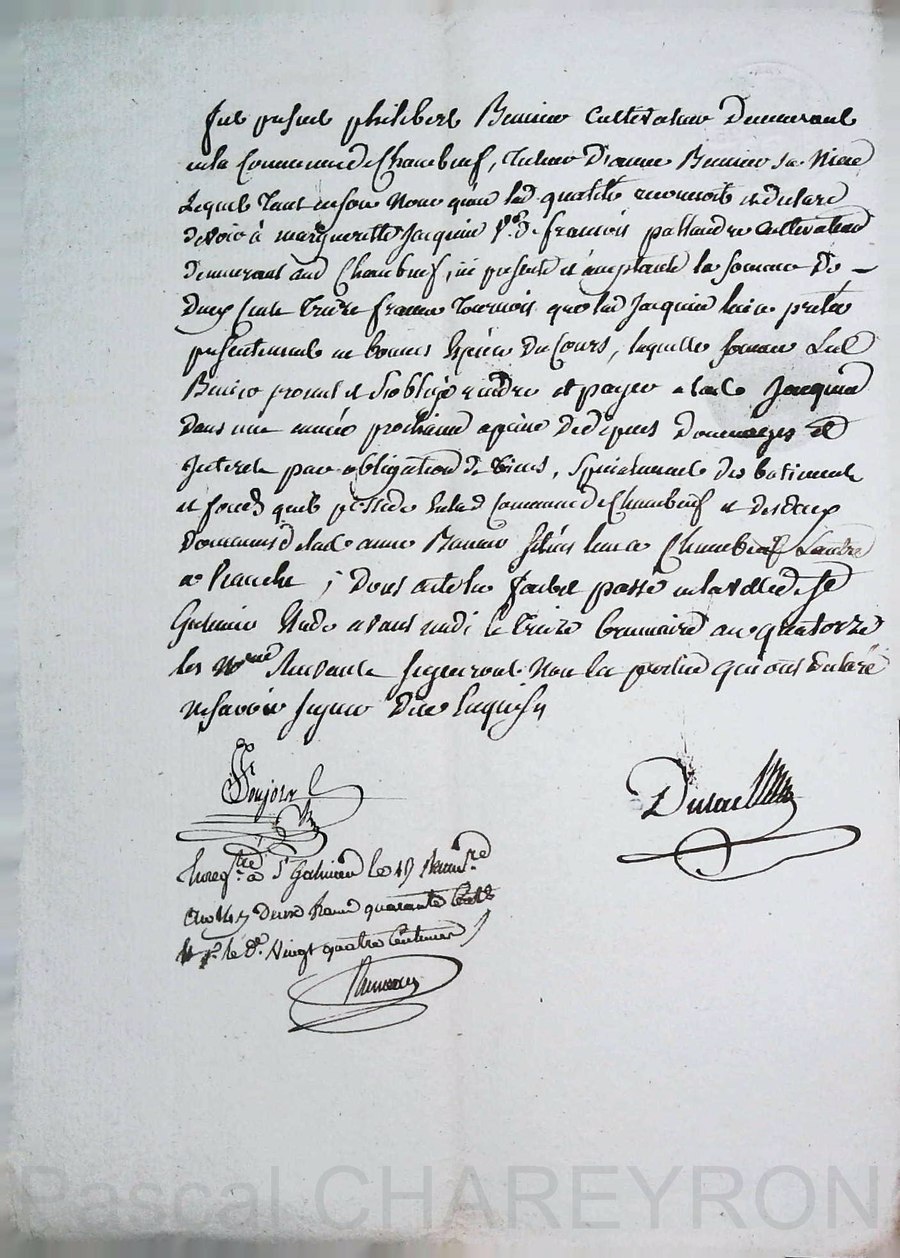 fut présent philibert Bruniau Cultivateur Demeurant
en la Commune de Chambeuf, Tuteur D'anne Bruniau sa Niece
Lequel Tant en son Nom qu'en lad qualité reconnoit et déclare
devoir à margueritte Jacquin Ve. de françois pallandre Cultivateur
demeurant aud Chambeuf, ici présente et acceptante la somme de
Deux Cents Treize francs Tournois que lad Jacquin lui a prêtée
présentement en bonnes Espèces du Cours, laquelle somme Led
promet et s'oblige rendre et payer a lad Jacquin
Dans une année prochaine apeine de depens Dommages et
Interets par obligation de biens, Spécialement des batiments
et fonds qu'il possède En lad Commune de Chambeuf et des deux
Domaines de lad anne situés l'un a Chambeuf Lautre
a ; Dont acte lu fait et passé en la ville de St
Galmier Etude avant midi le Treize brumaire an quatorze
les Soussigneront Non les parties qui ont déclaré
ne savoir signer De ce Enquis
Enregtré a St Galmier le 19 Brumre
an 14 Deux francs quarante Centes
Vingt quatre Centimes
Pascal CHAREYRON